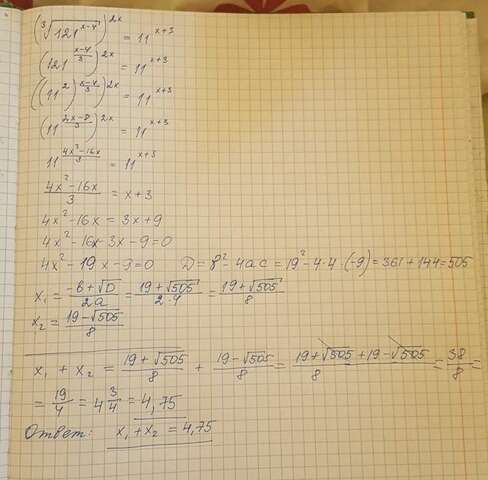 (∛(121^(x-4)))^2x = 11^(x+3)
(121^((x-4)/3))^2x = 11^(x+3)
((11^2)^((x-4)/3))^2x = 11^(x+3)
(11^((2x-8)/3))^2x = 11^(x+3)
11^((4x^2-16x)/3) = 11^(x+3)
(4x^2-16x)/3 = x+3
4x^2-16x = 3x+9
4x^2-16x-3x-9=0
4x^2-19x-9=0 D=b^2-4ac=19^2-4·4·(-9)=361+144=505
x₁ = (-b+√D)/2a = (19+√505)/(2·4) = (19+√505)/8
x₂ = (19-√505)/8
x₁ + x₂ = (19+√505)/8 + (19-√505)/8 = (19+√505+19-√505)/8 = 38/8 =
= 19/4 = 4 3/4 = 4,75
Ответ: x₁+x₂ = 4,75